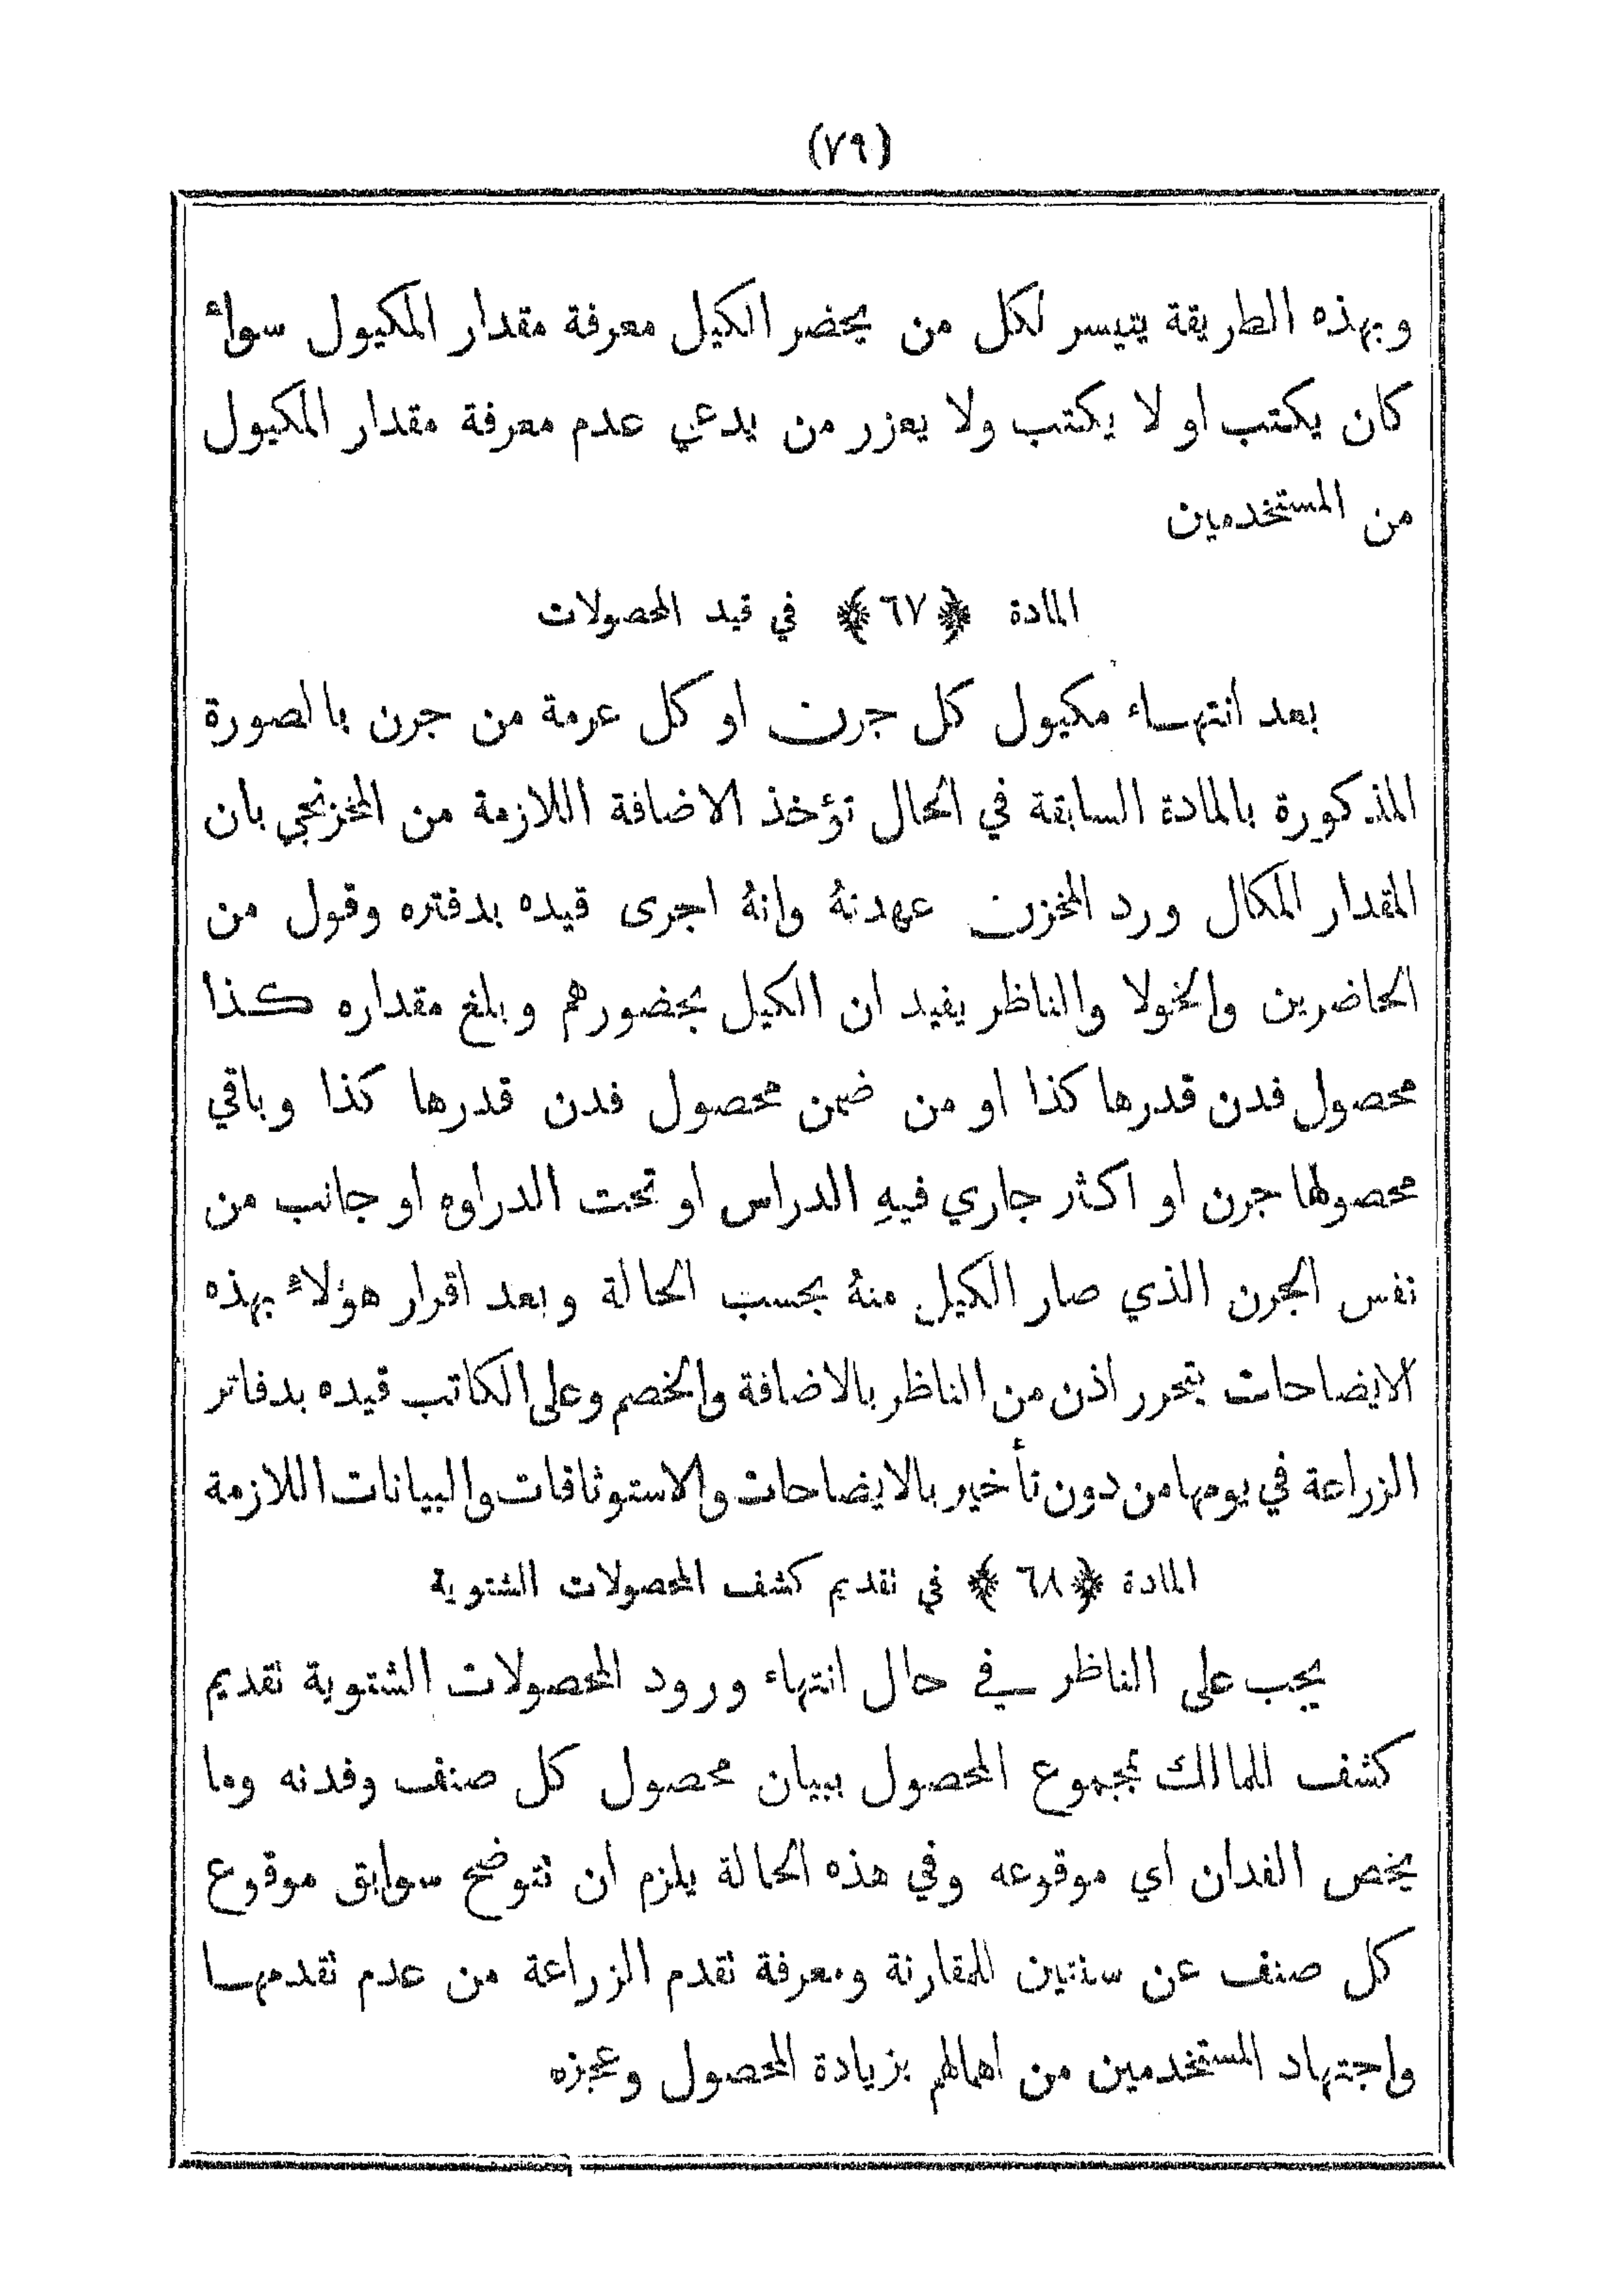 (٧٩)
وبهذه الطريقة يتيسر لكل من يحضر الكيل معرفة مقدار المكيول سواء
كان يكتب او لا يكتب ولا يعزر من يدعي عدم معرفة مقدار المكيول
من المستخدمين
المادة ﴿٦٧﴾ في قيد المحصولات
بعد انتهاء مكيول كل جرن او كل عرمة من جرن بالصورة
المذكورة بالمادة السابقة في الحال تؤخذ الاضافة اللازمة من المخزنجي بان
المقدار المكال ورد المخزن عهدتهُ وانهُ اجرى قيده بدفتره وقول من
الحاضرين والخولا والناظر يفيد ان الكيل بحضورهم وبلغ مقداره كذا
محصول فدن قدرها كذا او من ضمن محصول فدن قدرها كذا وباقي
محصولها جرن او اكثر جاري فيهِ الدراس او تحت الدراوه او جانب من
نفس الجرن الذي صار الكيل منهُ بحسب الحالة وبعد اقرار هؤلاءِ بهذه
الايضاحات يتحرر اذن من الناظر بالاضافة والخصم وعلى الكاتب قيده بدفاتر
الزراعة في يومها من دون تأخير بالايضاحات والاستوثاقات والبيانات اللازمة
المادة ﴿٦٨﴾ في تقديم كشف المحصولات الشتوية
يجب على الناظر في حال انتهاء ورود المحصولات الشتوية تقديم
كشف للمالك بمجموع المحصول ببيان محصول كل صنف وفدنه وما
يخص الفدان اي موقوعه وفي هذه الحالة يلزم ان تتوضح سوابق موقوع
كل صنف عن سنتين للمقارنة ومعرفة تقدم الزراعة من عدم تقدمها
واجتهاد المستخدمين من اهمالهم بزيادة المحصول وعجزه